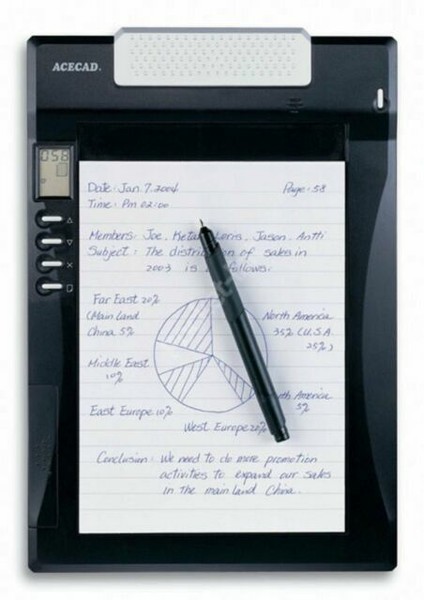 ACECAD.
058
Date: Jan. 7. 2004 Page: 58
Time: Pm 02:00
Members: Joe, Loris, Jason, Antti
Subject: The of sales in
2003 is follows:
Far East 20%
(Main land
China 5%
North America
35% (U.S.A.
25%)
Middle East
10%
America
5%
East Europe 10%
West Europe 20%
Conclusion: We need to do more promotion
activities to expand our sales
in the main land China.